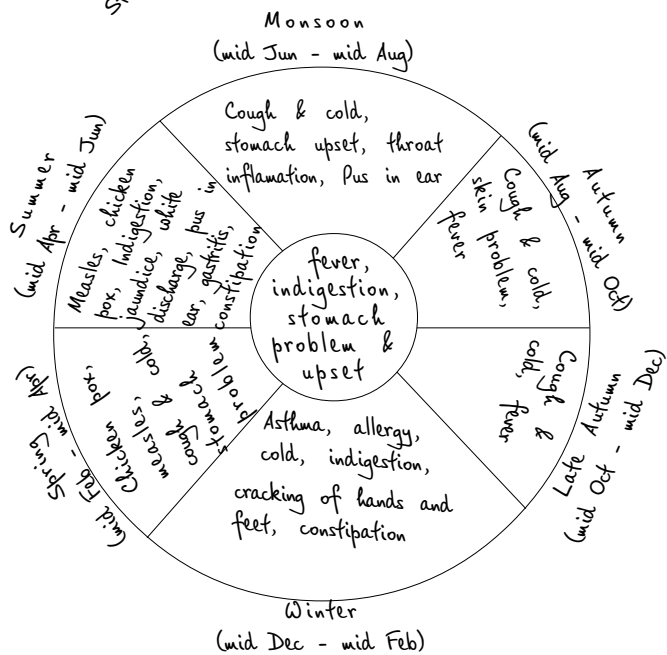 Monsoon
(mid Jun - mid Aug)
Cough & cold,
stomach upset, throat
inflamation, Pus in ear
Autumn
(mid Aug - mid Oct)
Cough & cold,
skin problem,
fever
Late Autumn
(mid Oct - mid Dec)
Cough &
cold, fever
Winter
(mid Dec - mid Feb)
Asthma, allergy,
cold, indigestion,
cracking of hands and
feet, constipation
Spring
(mid Feb - mid Apr)
Chicken pox,
measles,
cough & cold,
stomach
problem
Summer
(mid Apr - mid Jun)
Measles, chicken
pox, Indigestion,
jaundice, white
discharge, pus in
ear, gastritis,
constipation
fever,
indigestion,
stomach
problem &
upset